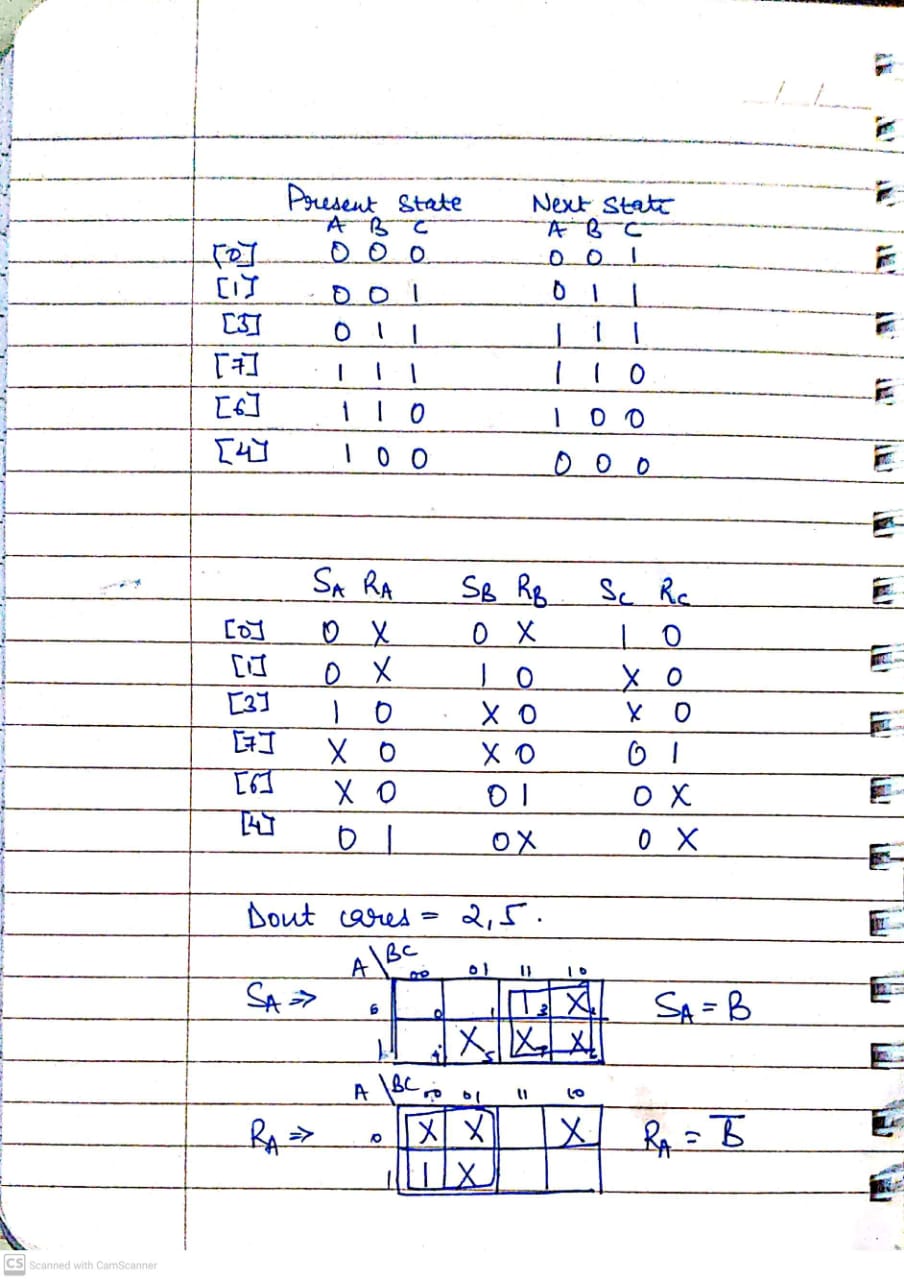 Present State Next State
A B C A B C
[0] 0 0 0 0 0 1
[1] 0 0 1 0 1 1
[3] 0 1 1 1 1 1
[7] 1 1 1 1 1 0
[6] 1 1 0 1 0 0
[4] 1 0 0 0 0 0
SA RA SB RB SC RC
[0] 0 X 0 X 1 0
[1] 0 X 1 0 X 0
[3] 1 0 X 0 X 0
[7] X 0 X 0 0 1
[6] X 0 0 1 0 X
[4] 0 1 0 X 0 X
Dout cares = 2,5.
A\BC 00 01 11 10
SA ⇒ 0 0 1 1 3 X 2 SA = B
1 4 X 5 X 7 X 6
A\BC 00 01 11 10
RA ⇒ 0 X X X RA = B̅
1 1 X
CS Scanned with CamScanner